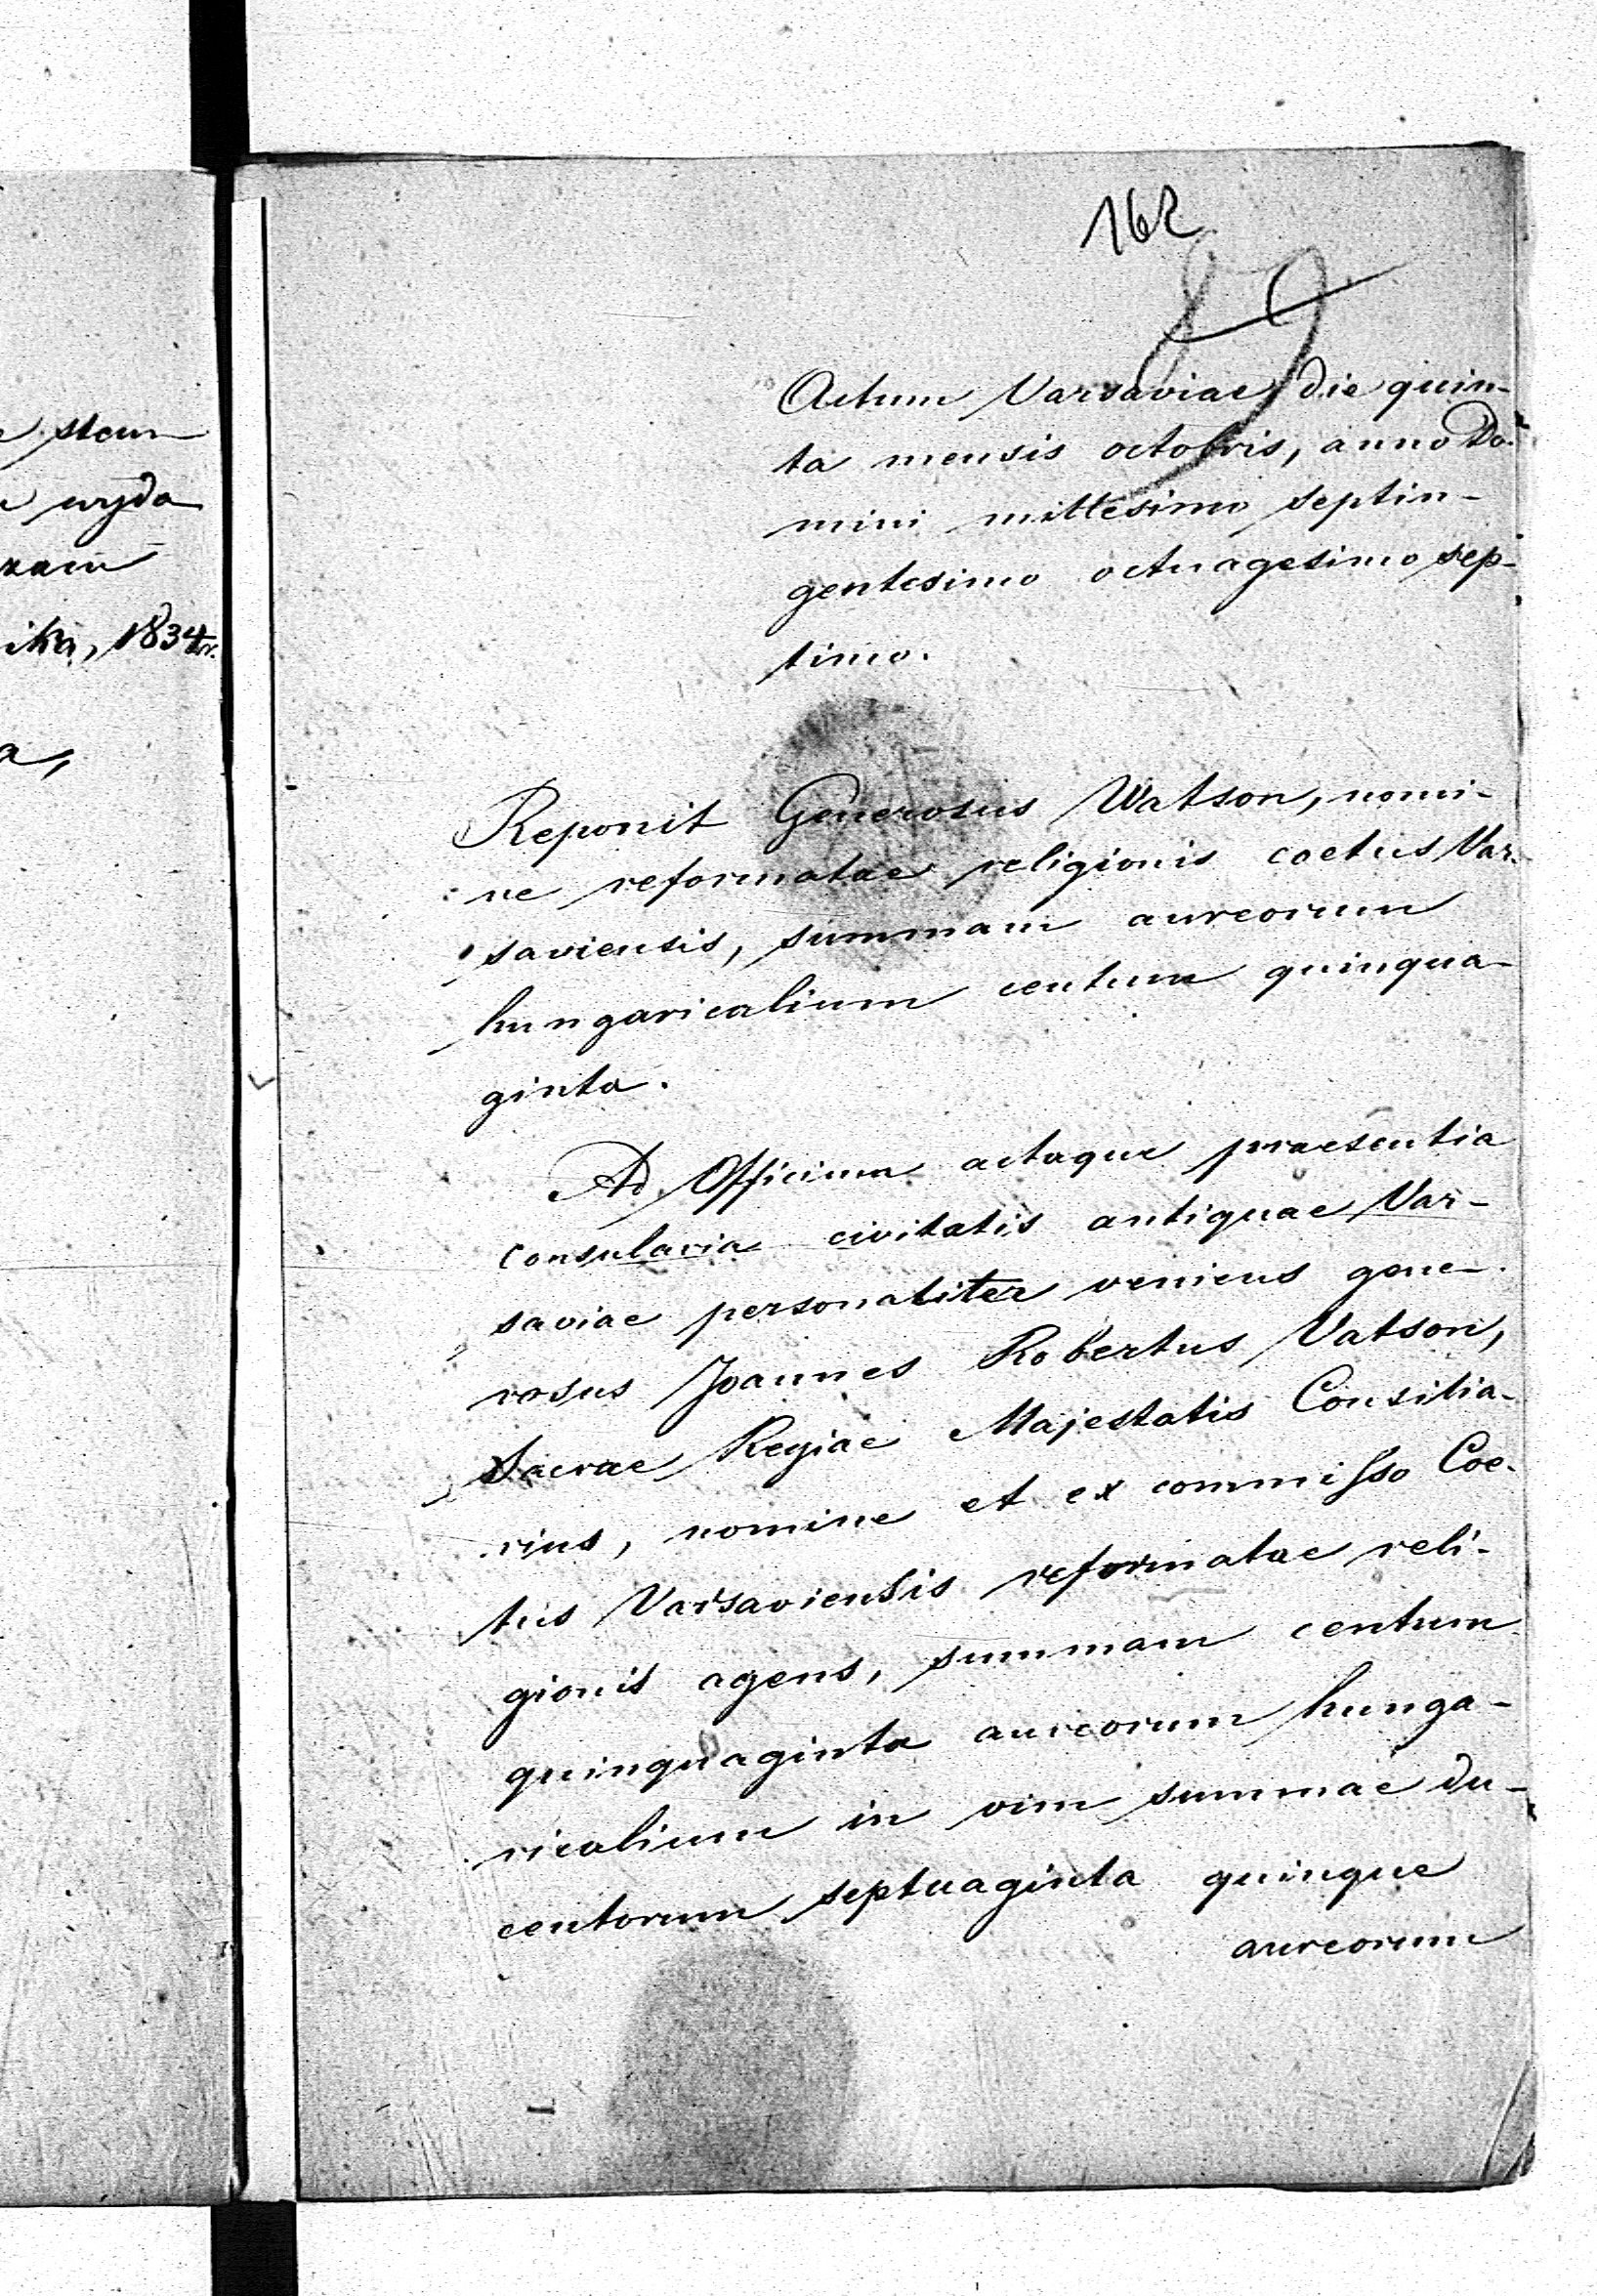 162
89
Actum Varsaviae die quin-
ta mensis octobris, anno Do-
mini millesimo septin-
gentesimo octuagesimo sep-
timo.
Reponit Generosus Watson, nomi-
ne reformatae religionis coetus Var-
saviensis, summam aureorum
hungaricalium centum quinqua-
ginta.
Ad Officium actaque praesentia
consularia civitatis antiquae Var-
saviae personaliter veniens gene-
rosus Joannes Robertus Vatson,
Sacrae Regiae Majestatis Consilia-
rius, nomine et ex commisso Coe-
tus Varsaviensis reformatae reli-
gionis agens, summam centum
quinquaginta aureorum hunga-
ricalium in vim summae du-
centorum septuaginta quinque
aureorum
wyda
1834 r.